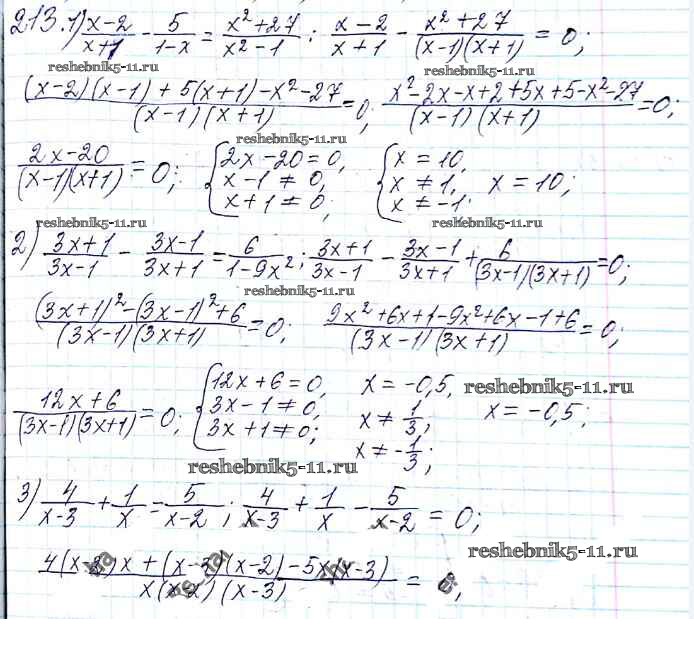 213. 1) (x-2)/(x+1) - 5/(1-x) = (x²+27)/(x²-1); (x-2)/(x+1) - (x²+27)/((x-1)(x+1)) = 0;
reshebnik5-11.ru
((x-2)(x-1) + 5(x+1) - x² - 27)/((x-1)(x+1)) = 0; (x² - 2x - x + 2 + 5x + 5 - x² - 27)/((x-1)(x+1)) = 0;
reshebnik5-11.ru
reshebnik5-11.ru
(2x-20)/((x-1)(x+1)) = 0; { 2x - 20 = 0, x - 1 ≠ 0, x + 1 ≠ 0; { x = 10, x ≠ 1, x ≠ -1. x = 10;
reshebnik5-11.ru
reshebnik5-11.ru
2) (3x+1)/(3x-1) - (3x-1)/(3x+1) = 6/(1-9x²); (3x+1)/(3x-1) - (3x-1)/(3x+1) + 6/((3x-1)(3x+1)) = 0;
reshebnik5-11.ru
((3x+1)² - (3x-1)² + 6)/((3x-1)(3x+1)) = 0; (9x² + 6x + 1 - 9x² + 6x - 1 + 6)/((3x-1)(3x+1)) = 0;
(12x+6)/((3x-1)(3x+1)) = 0; { 12x + 6 = 0, 3x - 1 ≠ 0, 3x + 1 ≠ 0; x = -0,5, x ≠ 1/3; x ≠ -1/3; x = -0,5;
reshebnik5-11.ru
reshebnik5-11.ru
3) 4/(x-3) + 1/x = 5/(x-2); 4/(x-3) + 1/x - 5/(x-2) = 0;
reshebnik5-11.ru